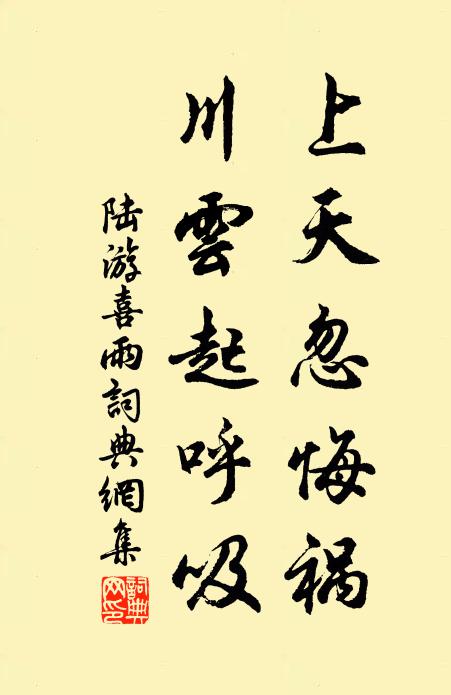 上天忽悔祸
川雲起呼吸
陆游喜雨詞典網集
詞典
网印